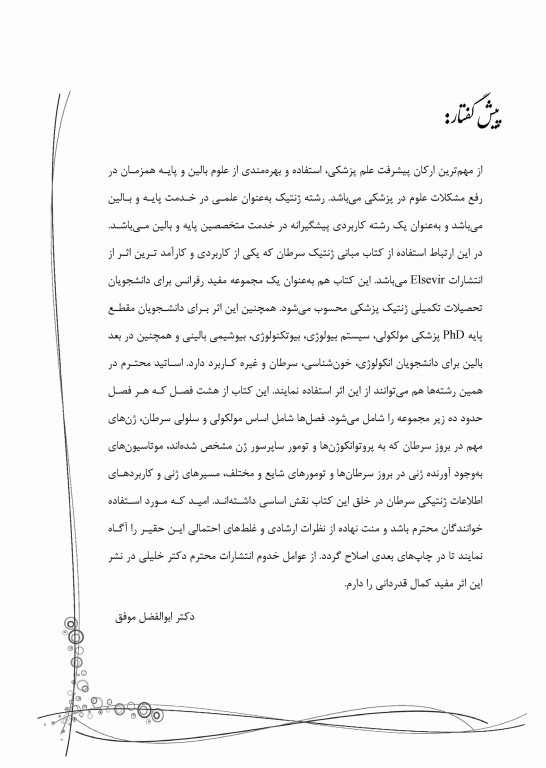 پیش گفتار:
از مهم‌ترین ارکان پیشرفت علم پزشکی، استفاده و بهره‌مندی از علوم بالین و پایه همزمان در
رفع مشکلات علوم در پزشکی می‌باشد. رشته ژنتیک به‌عنوان علمی در خدمت پایه و بالین
می‌باشد و به‌عنوان یک رشته کاربردی پیشگیرانه در خدمت متخصصین پایه و بالین می‌باشد.
در این ارتباط استفاده از کتاب مبانی ژنتیک سرطان که یکی از کاربردی و کارآمد ترین اثر از
انتشارات Elsevir می‌باشد. این کتاب هم به‌عنوان یک مجموعه مفید رفرانس برای دانشجویان
تحصیلات تکمیلی ژنتیک پزشکی محسوب می‌شود. همچنین این اثر برای دانشجویان مقطع
پایه PhD پزشکی مولکولی، سیستم بیولوژی، بیوتکنولوژی، بیوشیمی بالینی و همچنین در بعد
بالین برای دانشجویان انکولوژی، خون‌شناسی، سرطان و غیره کاربرد دارد. اساتید محترم در
همین رشته‌ها هم می‌توانند از این اثر استفاده نمایند. این کتاب از هشت فصل که هر فصل
حدود ده زیر مجموعه را شامل می‌شود. فصل‌ها شامل اساس مولکولی و سلولی سرطان، ژن‌های
مهم در بروز سرطان که به پروتوانکوژن‌ها و تومور ساپرسور ژن مشخص شده‌اند، موتاسیون‌های
به‌وجود آورنده ژنی در بروز سرطان‌ها و تومورهای شایع و مختلف، مسیرهای ژنی و کاربردهای
اطلاعات ژنتیکی سرطان در خلق این کتاب نقش اساسی داشته‌اند. امید که مورد استفاده
خوانندگان محترم باشد و منت نهاده از نظرات ارشادی و غلط‌های احتمالی این حقیر را آگاه
نمایند تا در چاپ‌های بعدی اصلاح گردد. از عوامل خدوم انتشارات محترم دکتر خلیلی در نشر
این اثر مفید کمال قدردانی را دارم.
دکتر ابوالفضل موفق